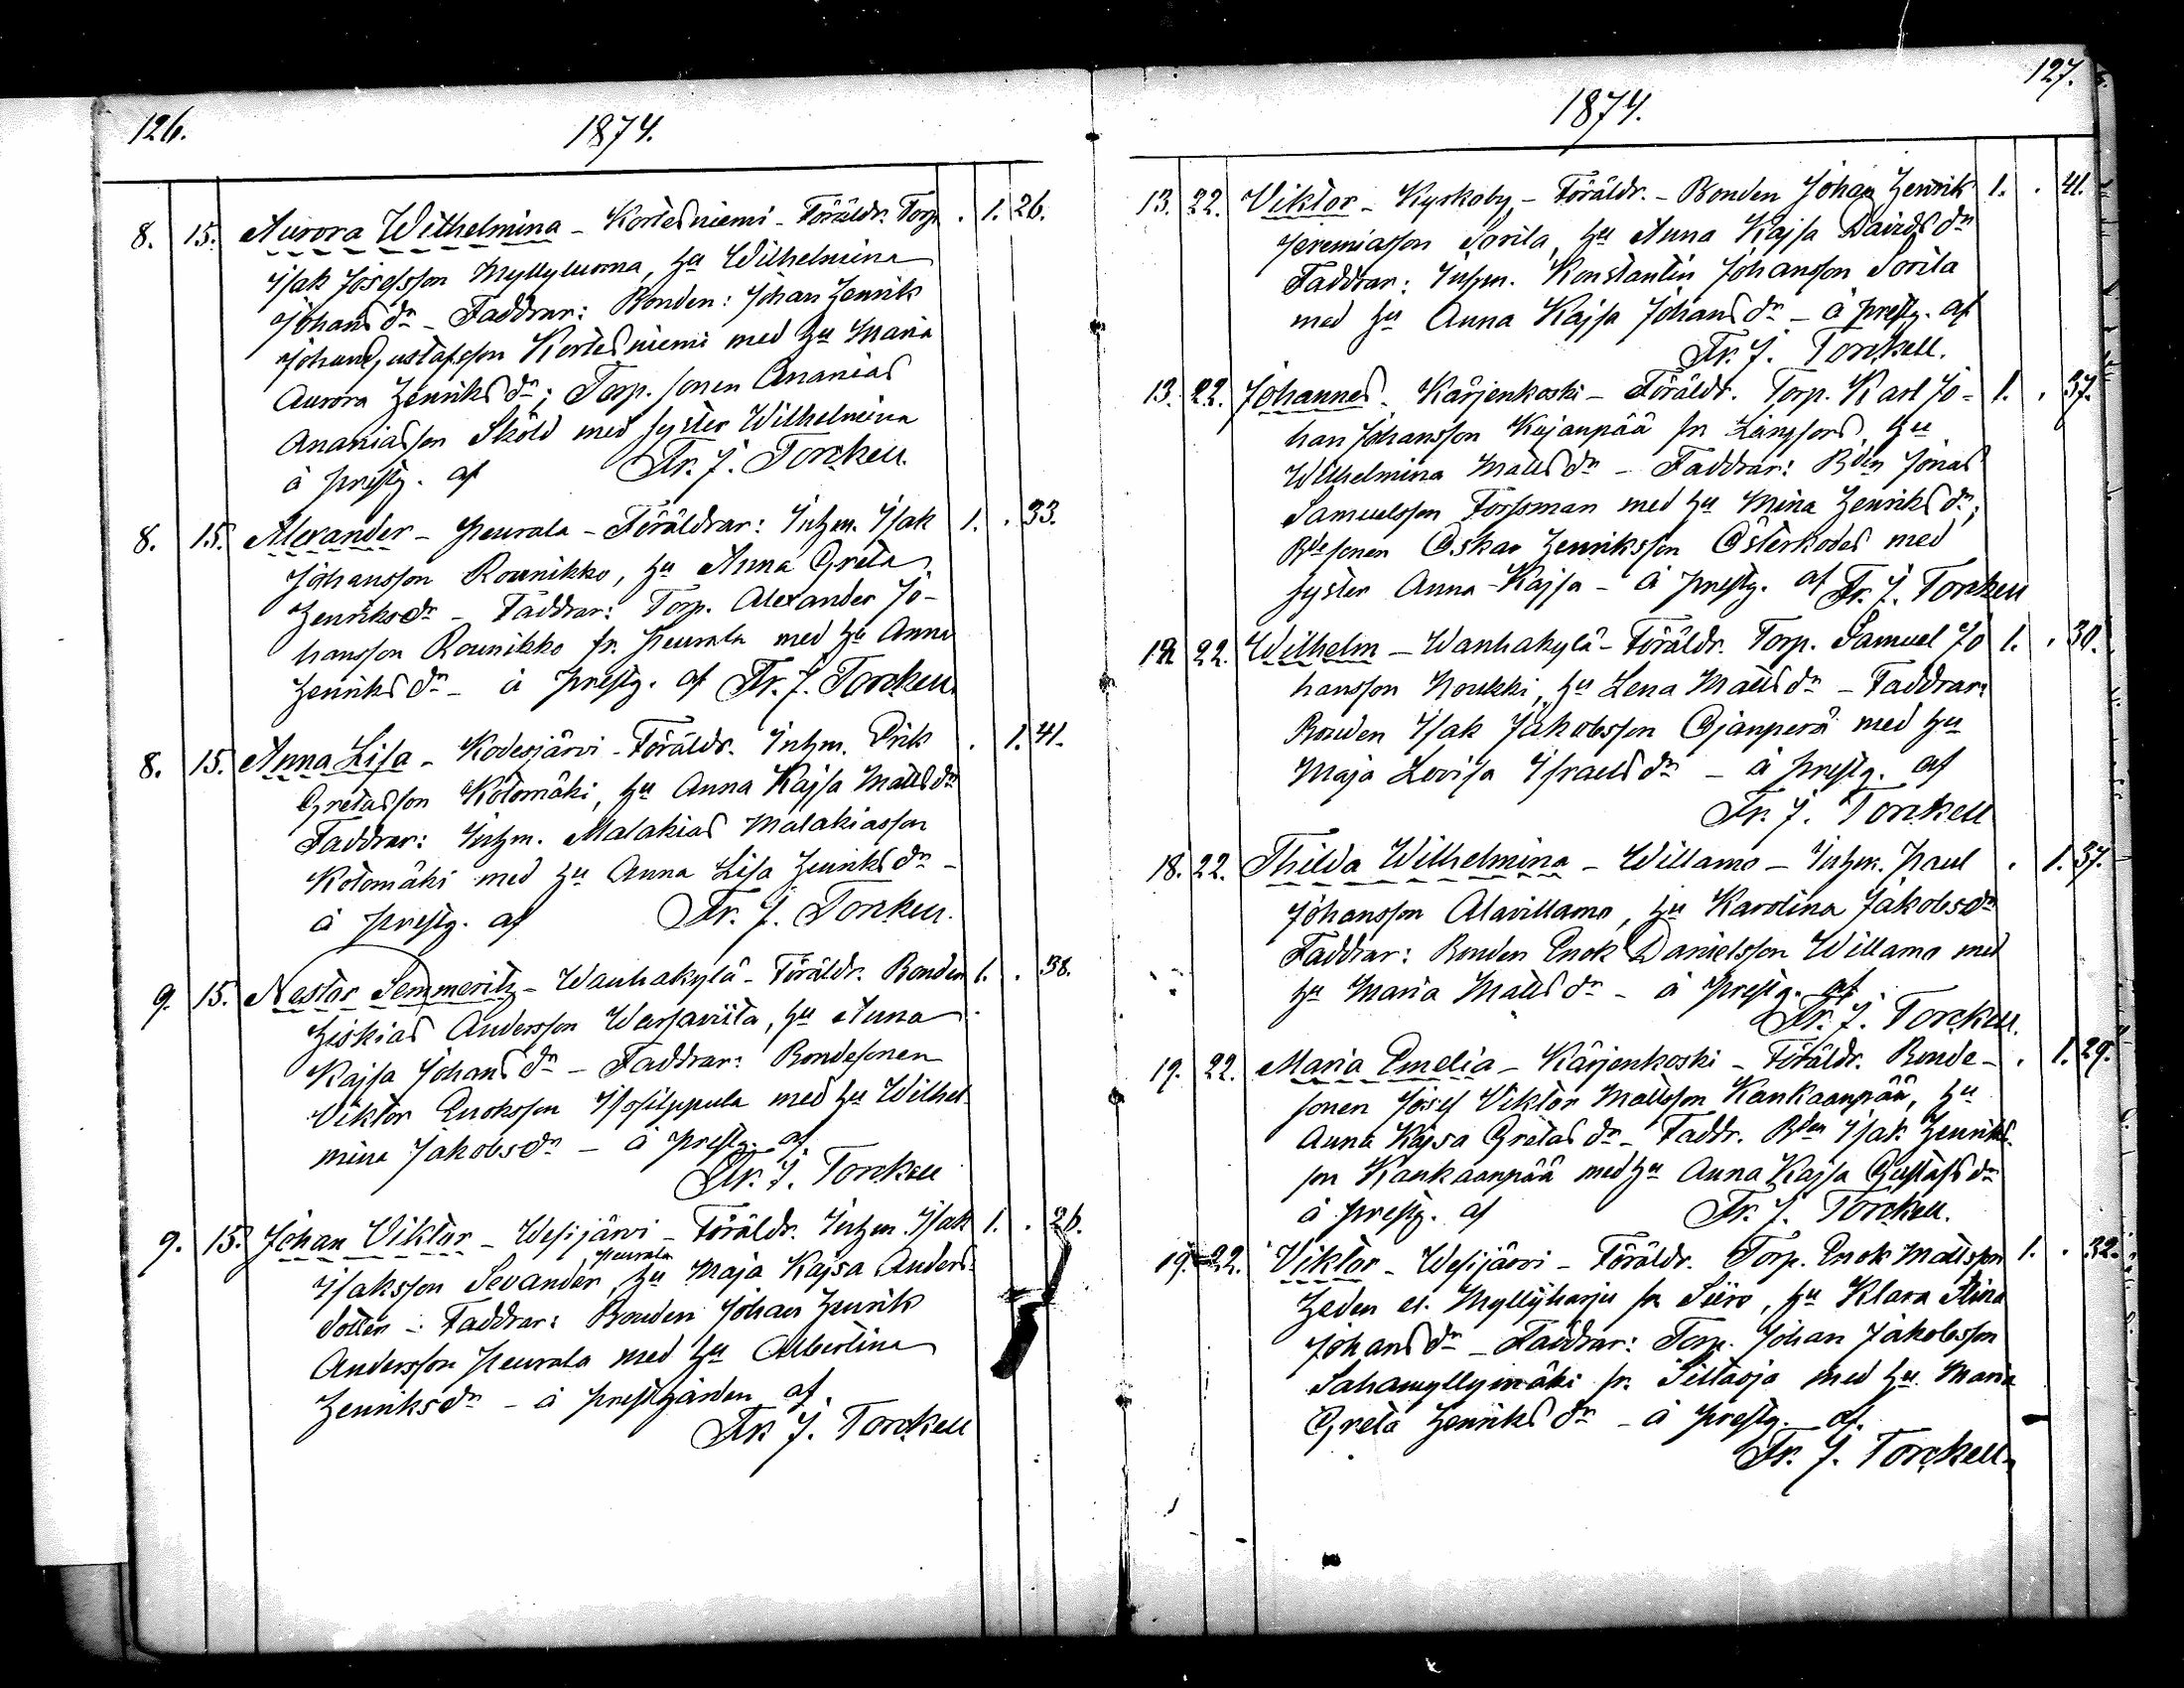 126.
1874.
8. 15. Aurora Wilhelmina - Kortesniemi - Föräldr. Torp. . 1. 26.
Isak Josefsson Myllyluoma, hu Wilhelmina
Johans dr - Faddrar: Bonden: Johan Henrik
Johan Gustafsson Kortesniemi med hu Maria
Aurora Henriks dr; Torp. sonen Ananias
Ananiasson Sköld med syster Wilhelmina
å prestg. af Fr. J. Torckell.
8. 15. Alexander - Peurala - Föräldrar: Inhm. Isak 1. . 33.
Johansson Rounikko, hu Anna Greta
Henriksdr - Faddrar: Torp. Alexander Jo-
hansson Rounikko fr. Peurala med hu Anna
Henriks dr - å prestg. af Fr. J. Torckell.
8. 15. Anna Lisa - Kodesjärvi - Föräldr. Inhm. Erik . 1. 41.
Gretasson Kotomäki, hu Anna Kajsa Matts dr
Faddrar: Inhm. Malakias Malakiasson
Kotomäki med hu Anna Lisa Henriks dr -
å prestg. af Fr. J. Torckell.
9. 15. Nestor Semmeritz - Wanhakylä - Föräldr. Bonden 1. . 38.
Heskias Andersson Warsaviita, hu Anna
Kajsa Johans dr - Faddrar: Bondesonen
Viktor Enoksson Isosilppula med hu Wilhel-
mina Jakobsdr - å prestg. af
Fr. J. Torckell
9. 15. Johan Viktor - Wesijärvi - Föräldr. Inhm. Isak 1. . 26.
Peurala
Isaksson Sevander, hu Maja Kajsa Anders-
dotter - Faddrar: Bonden Johan Henrik
Andersson Peurala med hu Albertina
Henriksdr - å prestgården af
Fr. J. Torckell
127.
1874.
13. 22. Viktor - Kyrkoby - Föräldr. - Bonden Johan Henrik 1. . 41.
Jeremiasson Sorila, hu Anna Kajsa Davids dr
Faddrar: Inhm. Konstantin Johansson Sorila
med hu Anna Kajsa Johans dr - å prestg. af
Fr. J. Torckell.
13. 22. Johannes - Kärjenkoski - Föräldr. Torp. Karl Jo- 1. . 37.
han Johansson Kujanpää fr Längfors, hu
Wilhelmina Matts dr - Faddrar: Bden Jonas
Samuelsson Forssman med hu Mina Henriks dr;
Bdesonen Oskar Henriksson Österkodes med
syster Anna Kajsa - å prestg. af Fr. J. Torckell
22. Wilhelm - Wanhakylä - Föräldr. Torp. Samuel Jo 1. . 30.
hansson Koukki, hu Lena Matts dr - Faddrar:
Bonden Isak Jakobsson Ojanperä med hu
Maja Lovisa Israels dr - å prestg. af
Fr. J. Torckell
18. 22. Thilda Wilhelmina - Willamo - Inhm. Paul . 1. 37.
Johansson Alavillamo, hu Karolina Jakobsdr
Faddrar: Bonden Enok Danielsson Willamo med
hu Maria Matts dr - å prestg. af
Fr. J. Torckell.
19. 22. Maria Emelia - Kärjenkoski - Föräldr. Bonde- . 1. 29.
sonen Josef Viktor Mattsson Kankaanpää, hu
Anna Kajsa Gretas dr - Faddr. Bden Isak Henriks-
son Kankaanpää med hu Anna Kajsa Gustafs dr
å prestg. af Fr. J. Torckell.
19. 22. Viktor - Wesijärvi - Föräldr. Torp. Enok Mattsson 1. . 32.
Heden el. Myllyharju fr Siiro, hu Klara Stina
Johans dr - Faddrar: Torp. Johan Jakobsson
Sahamyllymäki fr. Siltaoja med hu Maria
Greta Henriks dr - å prestg. af.
Fr. J. Torckell.